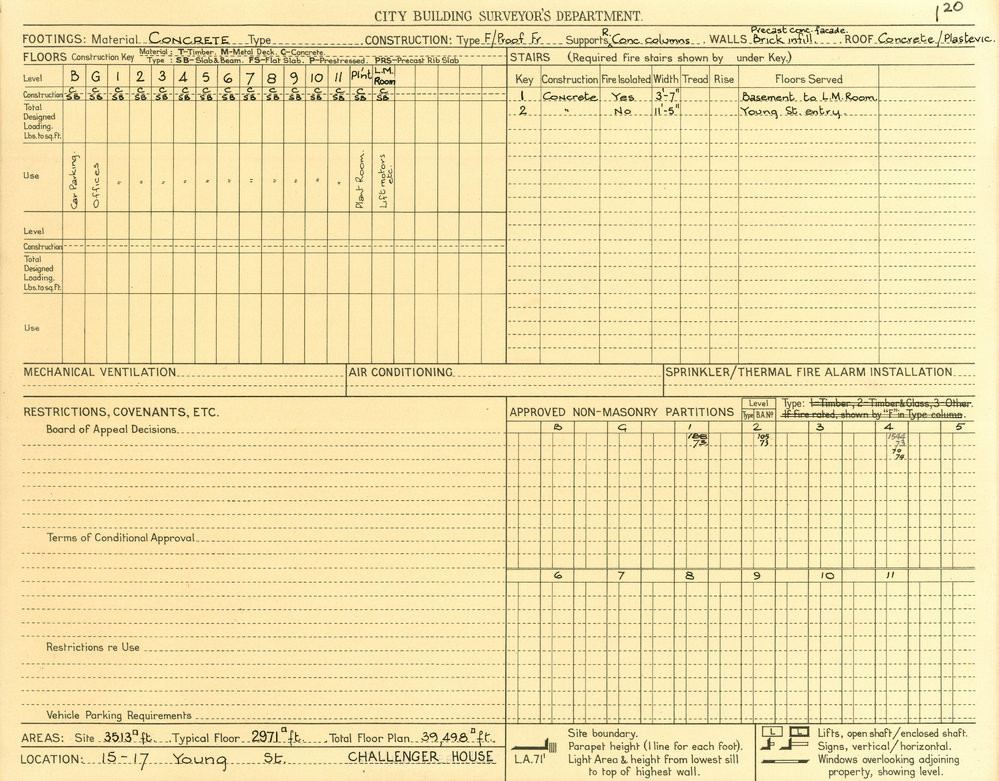 120
CITY BUILDING SURVEYOR'S DEPARTMENT.
FOOTINGS: Material CONCRETE Type CONSTRUCTION: Type F/Proof Fr. Supports R. Conc columns WALLS Precast conc. facade. Brick infill. ROOF Concrete/Plastevic.
FLOORS Construction Key Material: T-Timber. M-Metal Deck. C-Concrete.
Type: SB-Slab&Beam. FS-Flat Slab. P-Prestressed. PRS-Precast Rib Slab
Level B G 1 2 3 4 5 6 7 8 9 10 11 Pl'nt L.M. Room
Construction C SB C SB C SB C SB C SB C SB C SB C SB C SB C SB C SB C SB C SB C SB C SB
Total
Designed
Loading.
Lbs.to sq.ft.
Use Car Parking. Offices " " " " " " " " " " " Plant Room. Lift motors etc.
Level
Construction
Total
Designed
Loading.
Lbs.to sq.ft.
Use
STAIRS (Required fire stairs shown by under Key.)
Key Construction Fire Isolated Width Tread Rise Floors Served
1 Concrete Yes 3'-7" Basement to L.M. Room.
2 " No 11'-5" Young St. entry.
MECHANICAL VENTILATION
AIR CONDITIONING
SPRINKLER/THERMAL FIRE ALARM INSTALLATION
RESTRICTIONS, COVENANTS, ETC.
Board of Appeal Decisions.
Terms of Conditional Approval
Restrictions re Use
Vehicle Parking Requirements
APPROVED NON-MASONRY PARTITIONS Level Type B.A.Nº Type: 1-Timber, 2-Timber&Glass, 3-Other.
If fire rated, shown by "F" in Type column.
B G 1 2 3 4 5
73 105 73 1544 73
70 74
6 7 8 9 10 11
AREAS: Site 3513 □ ft. Typical Floor 2971 □ ft. Total Floor Plan 39,498 □ ft.
LOCATION: 15-17 Young St. CHALLENGER HOUSE
Site boundary.
Parapet height (1 line for each foot).
L.A.71' Light Area & height from lowest sill
to top of highest wall.
L L Lifts, open shaft/enclosed shaft.
Signs, vertical/horizontal.
Windows overlooking adjoining
property, showing level.